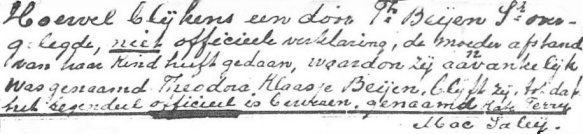 Hoewel blijkens een door Th. Beijen Sr. over-
gelegde, niet officieele verklaring, de moeder afstand
van haar kind heeft gedaan, waardoor zij aanvankelijk
was genaamd Theodora Klaasje Beijen, blijft zij, tot dat
het tegendeel officieel is bewezen, genaamd Kate Terry
Mac Saleij.